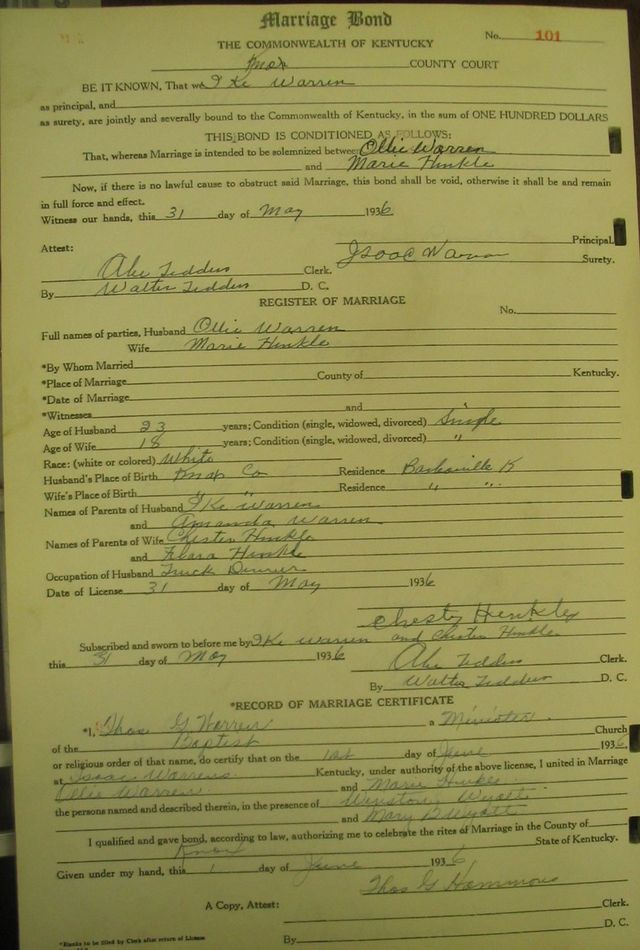 Marriage Bond
No. 101
THE COMMONWEALTH OF KENTUCKY
Knox COUNTY COURT
BE IT KNOWN, That we Ike Warren
as principal, and
as surety, are jointly and severally bound to the Commonwealth of Kentucky, in the sum of ONE HUNDRED DOLLARS
THIS BOND IS CONDITIONED AS FOLLOWS:
That, whereas Marriage is intended to be solemnized between Ollie Warren
and Marie Hinkle
Now, if there is no lawful cause to obstruct said Marriage, this bond shall be void, otherwise it shall be and remain
in full force and effect.
Witness our hands, this 31 day of May 1936
Principal.
Attest: Isaac Warren Surety.
Abe Tedders Clerk.
By Walter Tedders D. C.
REGISTER OF MARRIAGE
No.
Full names of parties, Husband Ollie Warren
Wife Marie Hinkle
*By Whom Married
*Place of Marriage County of Kentucky.
*Date of Marriage
*Witnesses and
Age of Husband 23 years; Condition (single, widowed, divorced) Single
Age of Wife 18 years; Condition (single, widowed, divorced) "
Race: (white or colored) White
Husband's Place of Birth Knox Co Residence Barbourville K
Wife's Place of Birth " " Residence " "
Names of Parents of Husband Ike Warren
and Amanda Warren
Names of Parents of Wife Chester Hinkle
and Hinkle
Occupation of Husband Truck
Date of License 31 day of May 1936
Chester Hinkle
Subscribed and sworn to before me by Ike Warren and Chester Hinkle
this 31 day of May 1936 Abe Tedders Clerk.
By Walter Tedders D. C.
*RECORD OF MARRIAGE CERTIFICATE
*I, Thos G Warren a Minister
of the Baptist Church
or religious order of that name, do certify that on the 1st day of June 1936
at Isaac Warrens Kentucky, under authority of the above license, I united in Marriage
Ollie Warren and Marie Hinkle
the persons named and described therein, in the presence of Winston Wyatt
and Mary B Wyatt
I qualified and gave bond, according to law, authorizing me to celebrate the rites of Marriage in the County of
Knox State of Kentucky.
Given under my hand, this 1 day of June 1936
Thos G Hammons
A Copy, Attest: Clerk.
By D. C.
*Blanks to be filled by Clerk after return of License